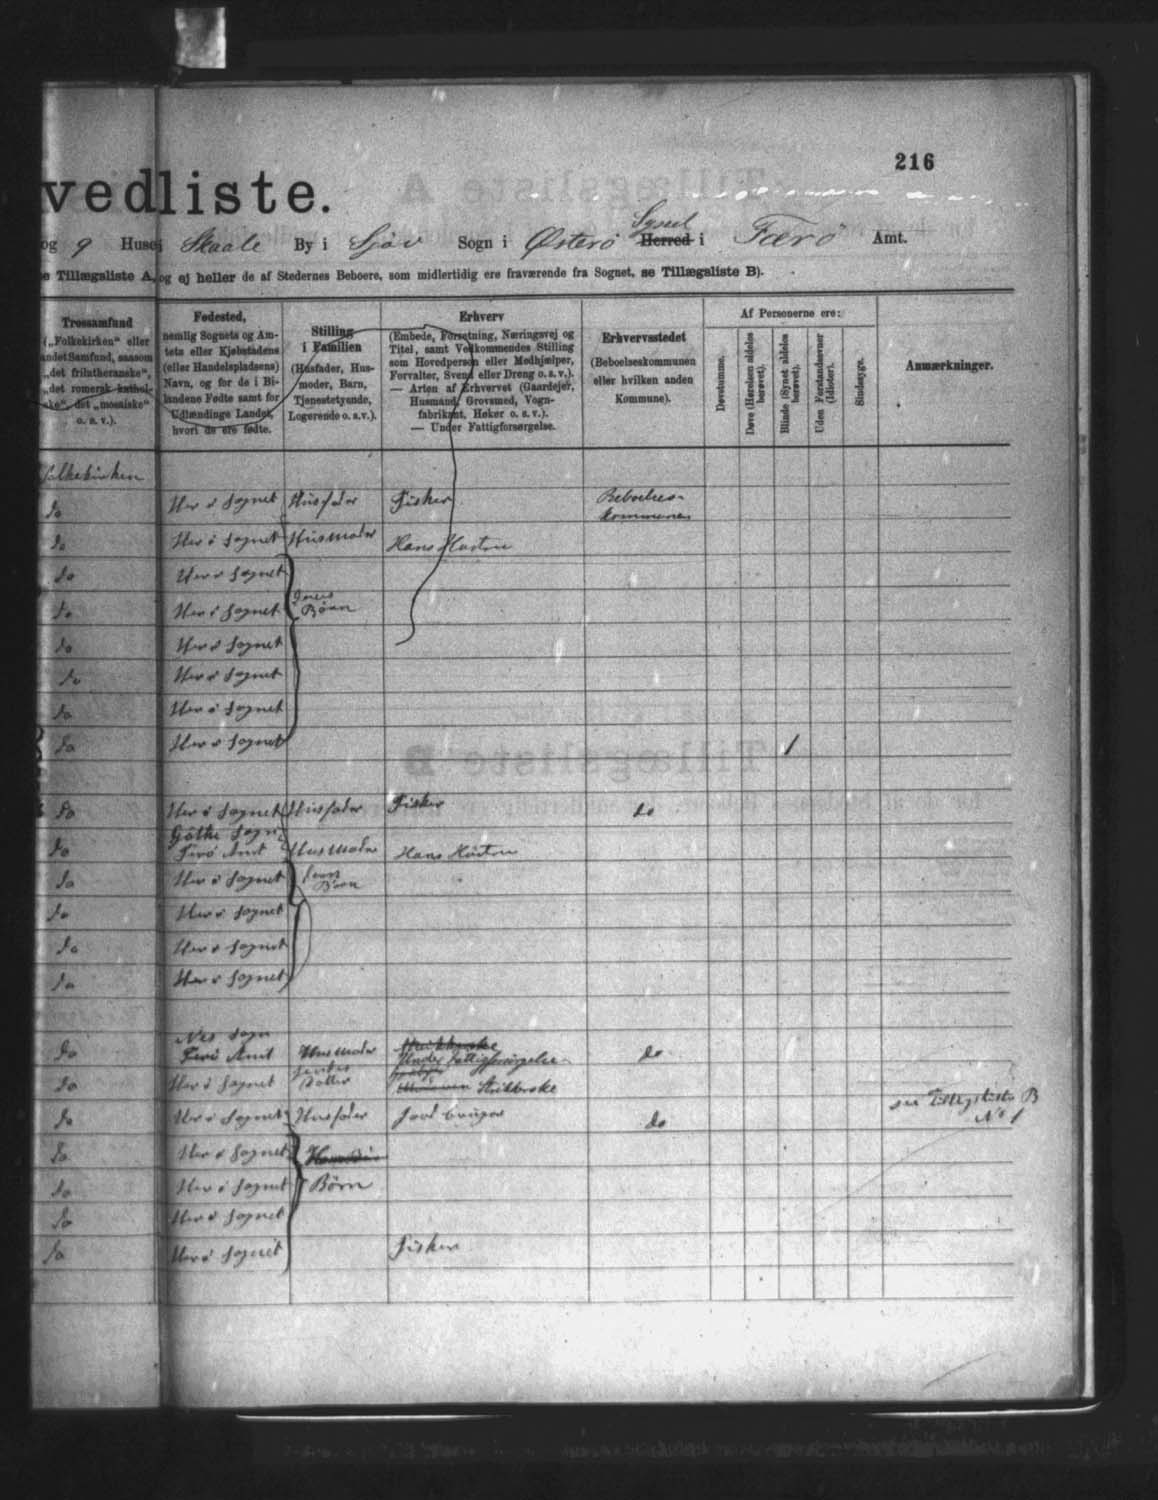 216
vedliste.
og 9 Husei Skaale By i Sjöv Sogn i Østerö Syssel Herred i Færö Amt.
e Tillægsliste A, og ej heller de af Stedernes Beboere, som midlertidig ere fraværende fra Sognet, se Tillægsliste B).
Trossamfund
(„Folkekirken“ eller
andet Samfund, saasom
„det frilutheranske“,
„det romersk-kathol-
ske“, det „mosaiske“
o. s. v.).
Fødested,
nemlig Sognets og Am-
tets eller Kjøbstadens
(eller Handelspladsens)
Navn, og for de i Bi-
landene Fødte samt for
Udlændinge Landet,
hvori de ere fødte.
Stilling
i Familien
(Husfader, Hus-
moder, Barn,
Tjenestetyende,
Logerende o. s. v.).
Erhverv
(Embede, Forretning, Næringsvej og
Titel, samt Vedkommendes Stilling
som Hovedperson eller Medhjælper,
Forvalter, Svend eller Dreng o. s. v.).
— Arten af Erhvervet (Gaardejer,
Husmand, Grovsmed, Vogn-
fabrikant, Høker o. s. v.).
— Under Fattigforsørgelse.
Erhvervsstedet
(Beboelseskommunen
eller hvilken anden
Kommune).
Af Personerne ere:
Døvstumme.
Døve (Hørelsen aldeles
berøvet).
Blinde (Synet aldeles
berøvet).
Uden Forstandsevner
(Idioter).
Sindssyge.
Anmærkninger.
Folkekirken
do Her i Sognet Husfader Fisker Beboelses-
kommunen
do Her i Sognet Husmoder Hans Hustru
do Her i Sognet
do Her i Sognet deres
Børn
do Her i Sognet
do Her i Sognet
do Her i Sognet
do Her i Sognet 1
do Her i Sognet Husfader Fisker do
Göthe Sogn
do Færö Amt Husmoder Hans Hustru
do Her i Sognet deres
Børn
do Her i Sognet
do Her i Sognet
do Her i Sognet
Nes Sogn
do Færö Amt Husmoder Under Fattigforsørgelse do
do Her i Sognet Datter Strikkerske
do Her i Sognet Husfader Jordbruger do se Tillægsliste B
No 1
do Her i Sognet
do Her i Sognet Børn
do Her i Sognet
do Her i Sognet Fisker